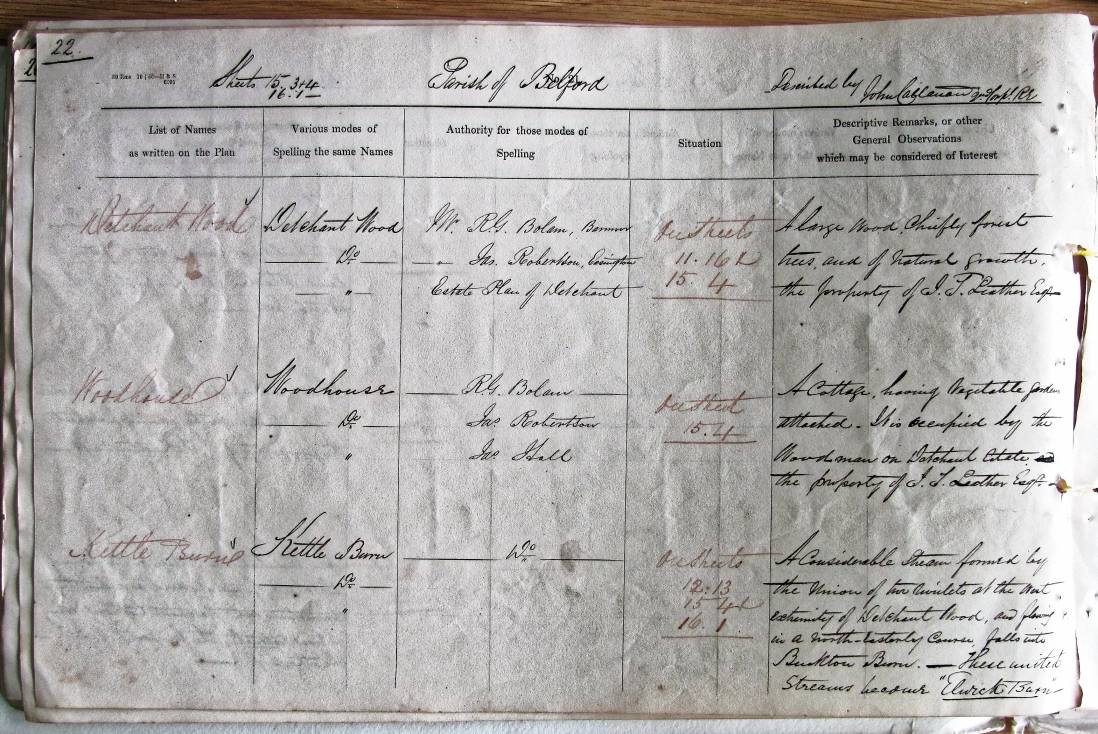 22.
Sheets 15. 3+4
16. 1
Parish of Belford
Described by John Callanan 2nd Corpl. RE
List of Names
as written on the Plan
Various modes of
Spelling the same Names
Authority for those modes of
Spelling
Situation
Descriptive Remarks, or other
General Observations
which may be considered of Interest
Detchant Wood
Detchant Wood
Do
"
Mr. R.G. Bolam,
" Jas. Robertson,
Estate Plan of Detchant
On Sheets
11. 16 &
15. 4
A large Wood Chiefly forest
trees, and of Natural growth.
the property of J. T. Leather Esqr.
Woodhouse
Woodhouse
Do
"
R.G. Bolam
Jas Robertson
Jas Hall
On Sheet
15.4
A Cottage, having Vegetable garden
attached. It is occupied by the
Woodman on Detchant Estate
the property of J. T. Leather Esqr.
Kettle Burn
Kettle Burn
Do
"
Do
On Sheets
12.13
15 4 &
16. 1.
A Considerable Stream formed by
the Union of two rivulets at the West
extremity of Detchant Wood, and flowing
in a North-Easterly Course, falls into
Buckton Burn. — These united
Streams become "Elwick Burn"